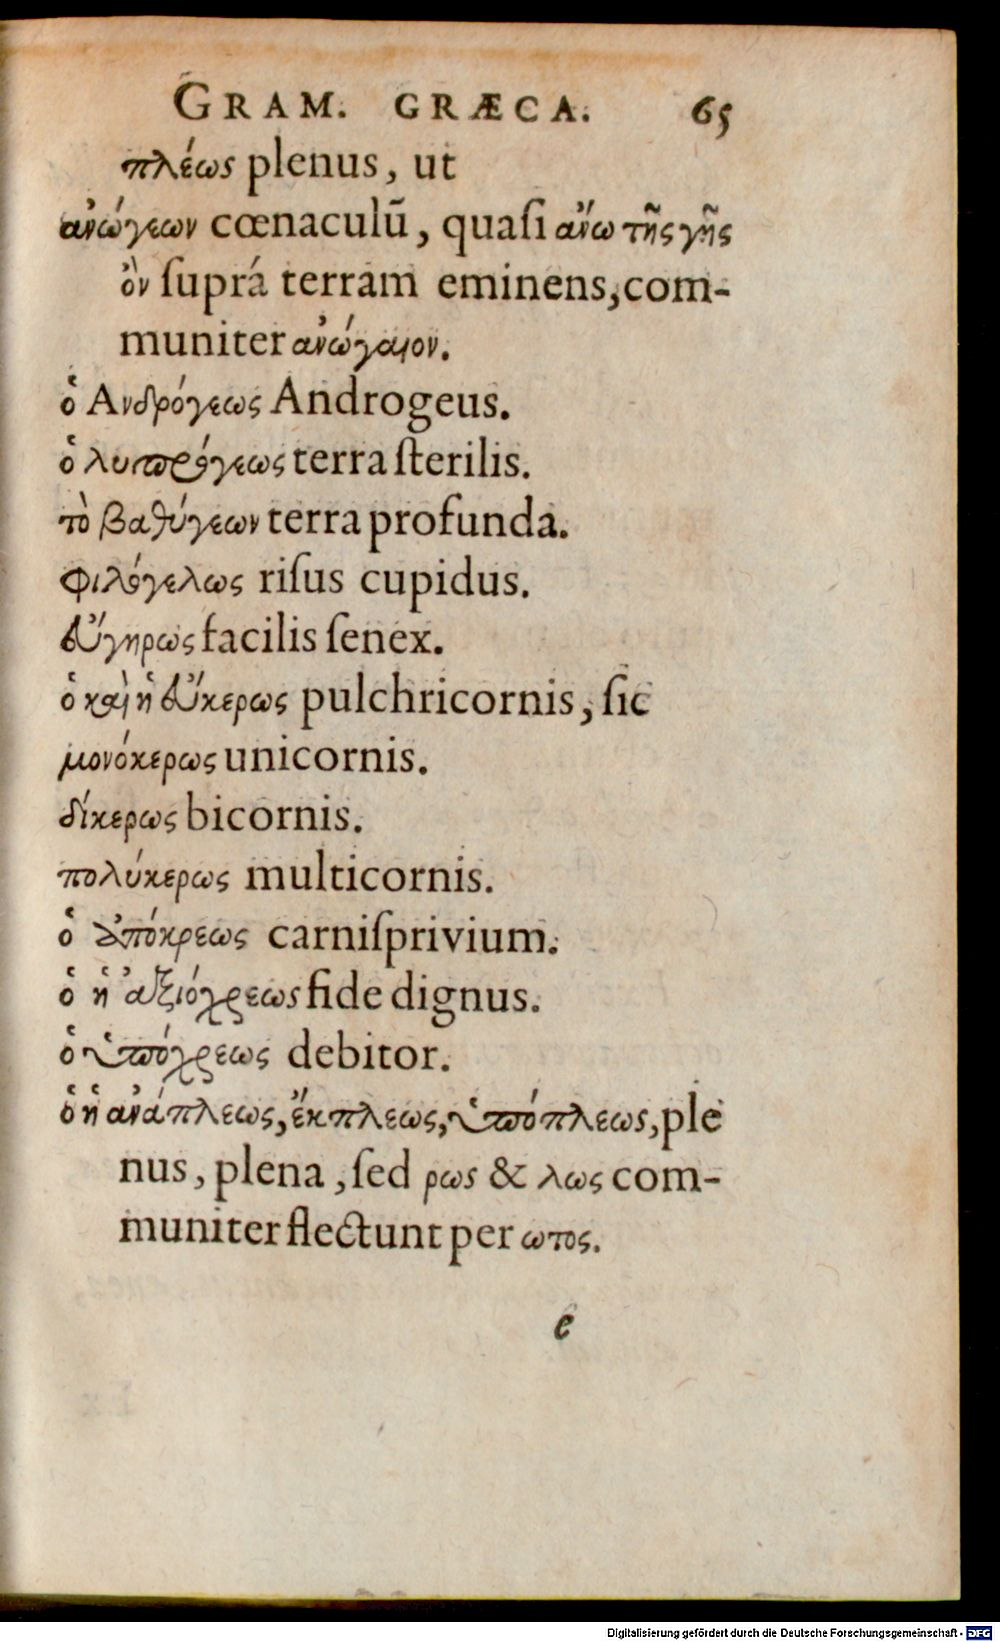 GRAM. GRÆCA. 65
πλέως plenus, ut
ἀνώγεων cœnaculū, quaſi ἄνω τῆς γῆς
ὂν ſuprá terram eminens, com-
muniter ἀνώγαιον.
ὁ Ανδρόγεως Androgeus.
ὁ λυπρόγεως terra ſterilis.
τὸ βαθύγεων terra profunda.
φιλόγελως riſus cupidus.
εὔγηρως facilis ſenex.
ὁ καὶ ἡ εὔκερως pulchricornis, ſic
μονόκερως unicornis.
δίκερως bicornis.
πολύκερως multicornis.
ὁ ἀπόκρεως carniſprivium.
ὁ ἡ ἀξιόχρεως fide dignus.
ὁ ὑπόχρεως debitor.
ὁ ἡ ἀνάπλεως, ἔκπλεως, ὑπόπλεως, ple
nus, plena, ſed ρως & λως com-
muniter flectunt per ωτος.
e
Digitalisierung gefördert durch die Deutsche Forschungsgemeinschaft - DFG